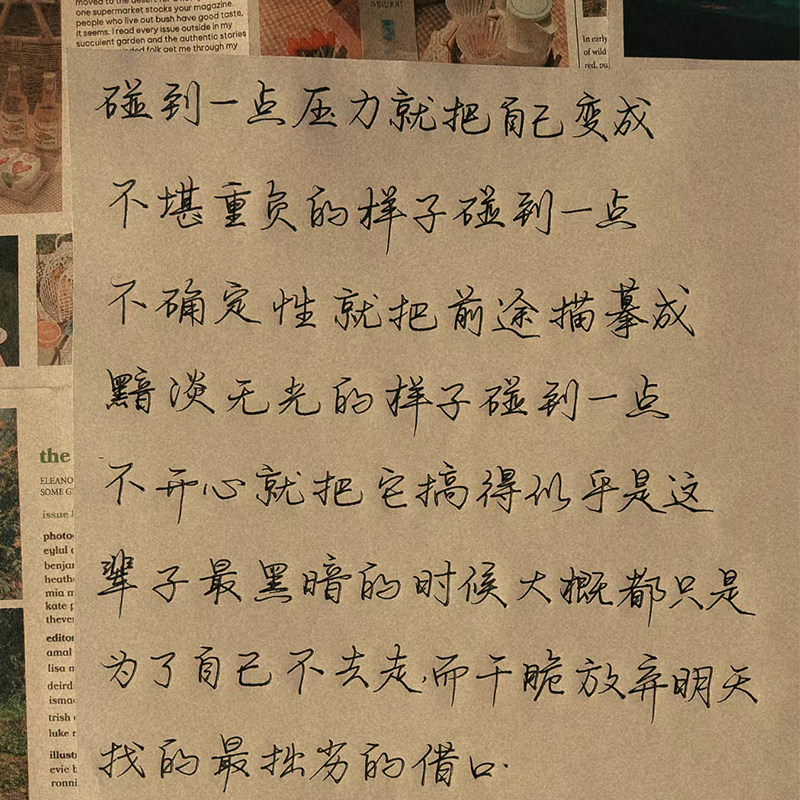 moved to the desert for a
one supermarket stocks your magazine.
people who live out bush have good taste,
it seems. I read every issue outside in my
succulent garden and the authentic stories
folk get me through my
In early
of wild
red, pu
碰到一点压力就把自己变成
不堪重负的样子碰到一点
不确定性就把前途描摹成
黯淡无光的样子碰到一点
不开心就把它搞得似乎是这
辈子最黑暗的时候大概都只是
为了自己不去走,而干脆放弃明天
找的最拙劣的借口.
the
ELEANO
SOME G
issue
photo
eylul
benja
heath
mia m
kate p
theve
editor
amal
lisa n
deird
isma
trish
luke r
illust
evie b
ronni